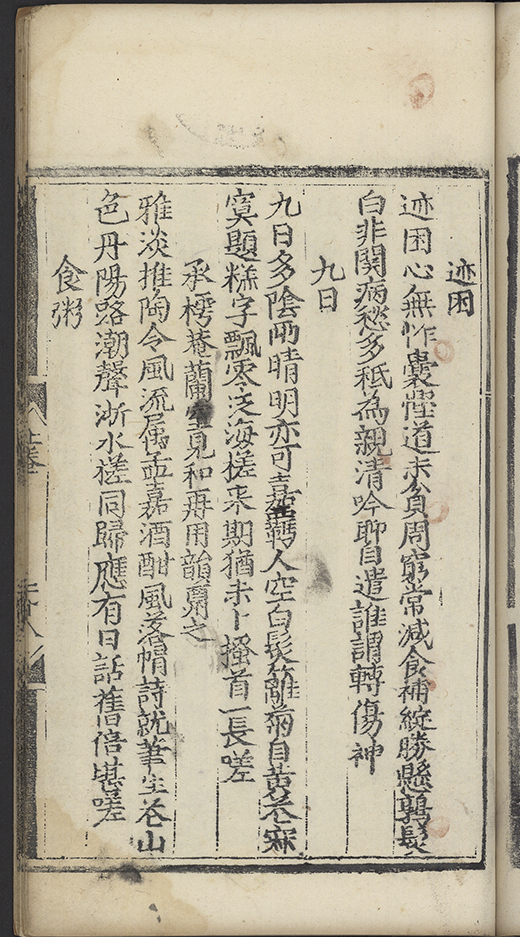 迹困
迹困心無怍囊慳道未貧周窮常減食補綻勝懸鶉髮
白非関病愁多秪為親清吟聊自遣誰謂轉傷神
九日
九日多陰雨晴明亦可嘉羈人空白髮籬菊自黄花寂
寞題糕字飄零泛海槎来期猶未卜搔首一長嗟
承樗菴蘭室見和再用韻之
雅淡推陶令風流属孟嘉酒酣風落帽詩就筆生花山
色丹陽路潮聲浙水槎同歸應有日話舊倍堪嗟
食粥